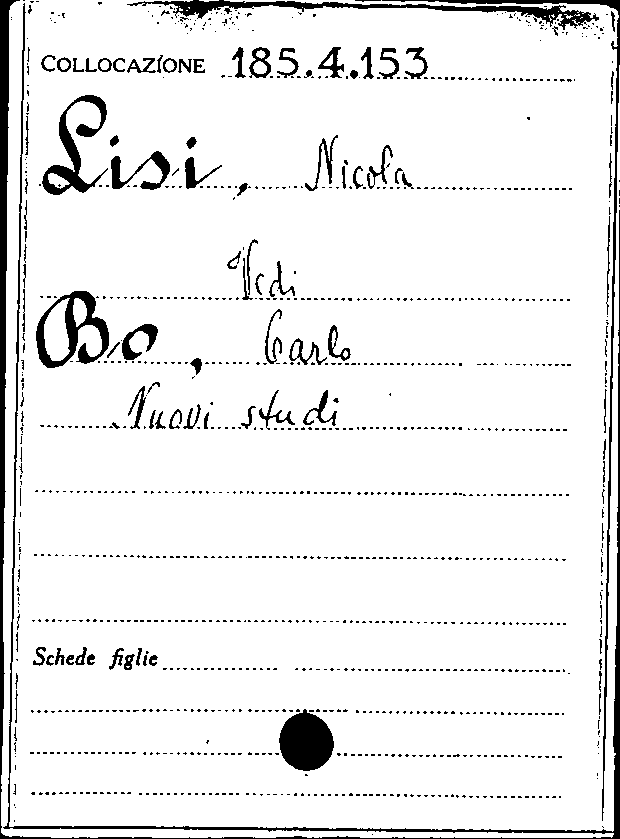 COLLOCAZIONE 185.4.153
Lisi, Nicola
Vedi
Bo, Carlo
Nuovi studi
Schede figlie